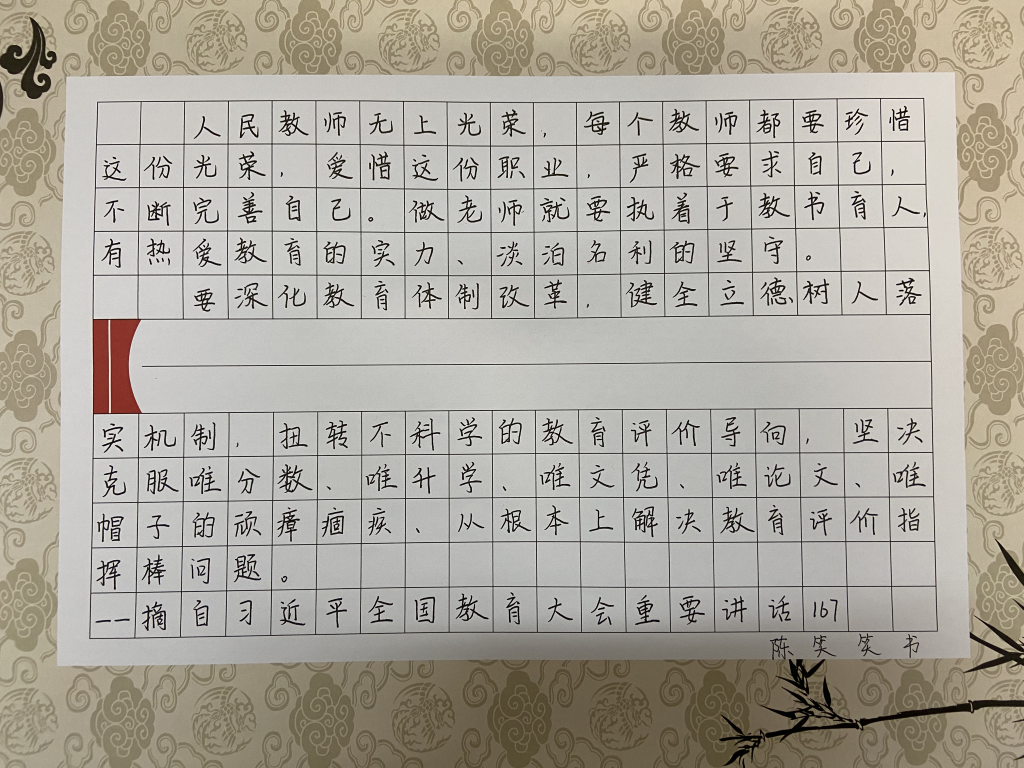 人民教师无上光荣，每个教师都要珍惜
这份光荣，爱惜这份职业，严格要求自己，
不断完善自己。做老师就要执着于教书育人，
有热爱教育的实力、淡泊名利的坚守。
要深化教育体制改革，健全立德树人落
实机制，扭转不科学的教育评价导向，坚决
克服唯分数、唯升学、唯文凭、唯论文、唯
帽子的顽瘴痼疾、从根本上解决教育评价指
挥棒问题。
——摘自习近平全国教育大会重要讲话167
陈笑笑书